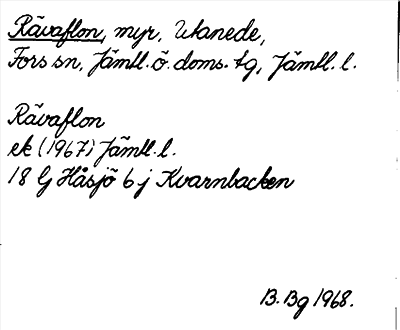 Rävaflon, myr, Utanede,
Fors sn, Jämtl. ö. doms. tg, Jämtl. l.
Rävaflon
ek (1967) Jämtl. l.
18 G Håsjö 6 j Kvarnbacken
B. Bg 1968.